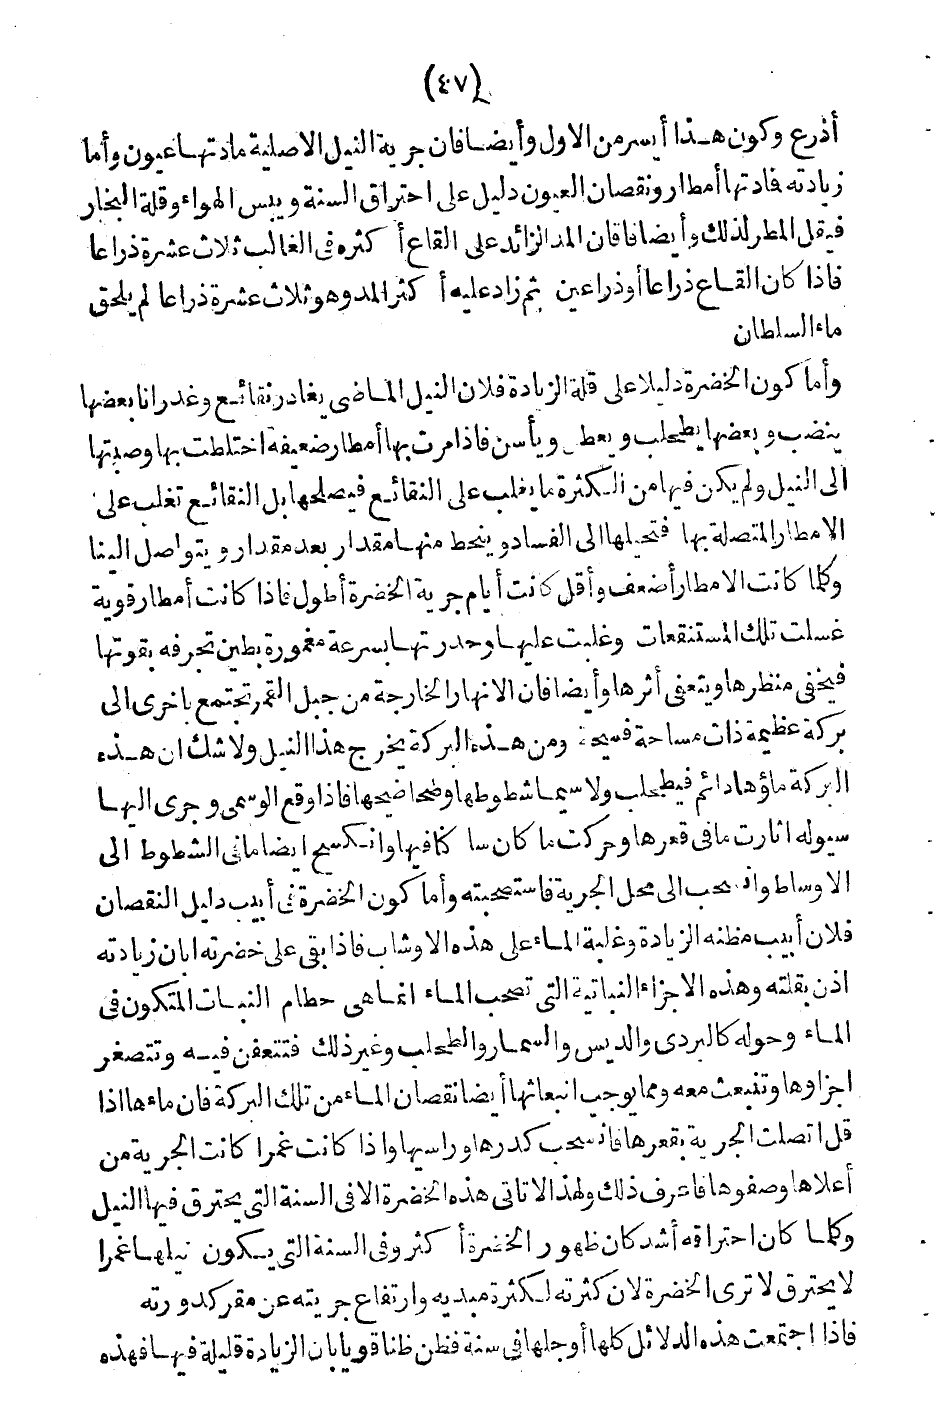 (٤٧)
أذرع وكون هذا أيسر من الاول وأيضا فان جرية النيل الاصلية مادتها عيون وأما
زيادته فمادتها أمطار ونقصان العيون دليل على احتراق السنة ويبس الهواء وقلة البخار
فيقل المطر لذلك وأيضا فان المد الزائد على القاع أكثره فى الغالب ثلاث عشرة ذراعا
فاذا كان القاع ذراعا أوذراعين ثم زاد عليه أكثر المد وهو ثلاث عشرة ذراعا لم يلحق
ماء السلطان
وأما كون الخضرة دليلا على قلة الزيادة فلان النيل الماضى يغادر نقائع وغدرانا بعضها
ينضب وبعضها يطحلب ويعطن ويأسن فاذا مرت بها أمطار ضعيفة اختلطت بها وصبتها
الى النيل ولم يكن فيها من الكثرة ما يغلب على النقائع فيصلحها بل النقائع تغلب على
الامطار المتصلة بها فتحيلها الى الفساد وينحط منها مقدار بعد مقدار ويتواصل الينا
وكلما كانت الامطار أضعف وأقل كانت أيام جرية الخضرة أطول فاذا كانت أمطار قوية
غسلت تلك المستنقعات وغلبت عليها وحدرتها بسرعة مغمورة بطين تجرفه بقوتها
فيخفى منظرها ويتعفى أثرها وأيضا فان الانهار الخارجة من جبل القمر تجتمع باخرى الى
بركة عظيمة ذات مساحة فسيحة ومن هذه البركة يخرج هذا النيل ولا شك ان هذه
البركة ماؤها دائم فيطحلب ولا سيما شطوطها وضحاضيحها فاذا وقع الوسمى وجرى اليها
سيوله اثارت ما فى قعرها وحركت ما كان ساكنا فيها وانكسح ايضا ما فى الشطوط الى
الاوساط وانسحب الى محل الجرية فاستصحبته وأما كون الخضرة فى أبيب دليل النقصان
فلان أبيب مظنه الزيادة وغلبة الماء على هذه الاوشاب فاذا بقى على خضرته ابان زيادته
اذن بقلته وهذه الاجزاء النباتية التى تصحب الماء انما هى حطام النبات المتكون فى
الماء وحوله كالبردى والديس والسمار والطحلب وغير ذلك فتتعفن فيه وتتصغر
اجزاوها وتنبعث معه ومما يوجب انبعاثها أيضا نقصان الماء من تلك البركة فان ماءها اذا
قل اتصلت الجرية بقعرها فانسحب كدرها وراسيها واذا كانت غمرا كانت الجرية من
أعلاها وصفوها فاعرف ذلك ولهذا لا تاتى هذه الخضرة الا فى السنة التى يحترق فيها النيل
وكلما كان احتراقه أشد كان ظهور الخضرة أكثر وفى السنة التى يكون نيلها غمرا
لا يحترق لا ترى الخضرة لان كثرته لكثرة مبديه وارتفاع جريته عن مقر كدورته
فاذا اجتمعت هذه الدلائل كلها أوجلها فى سنة فظن ظنا قويا بان الزيادة قليلة فيها فهذه